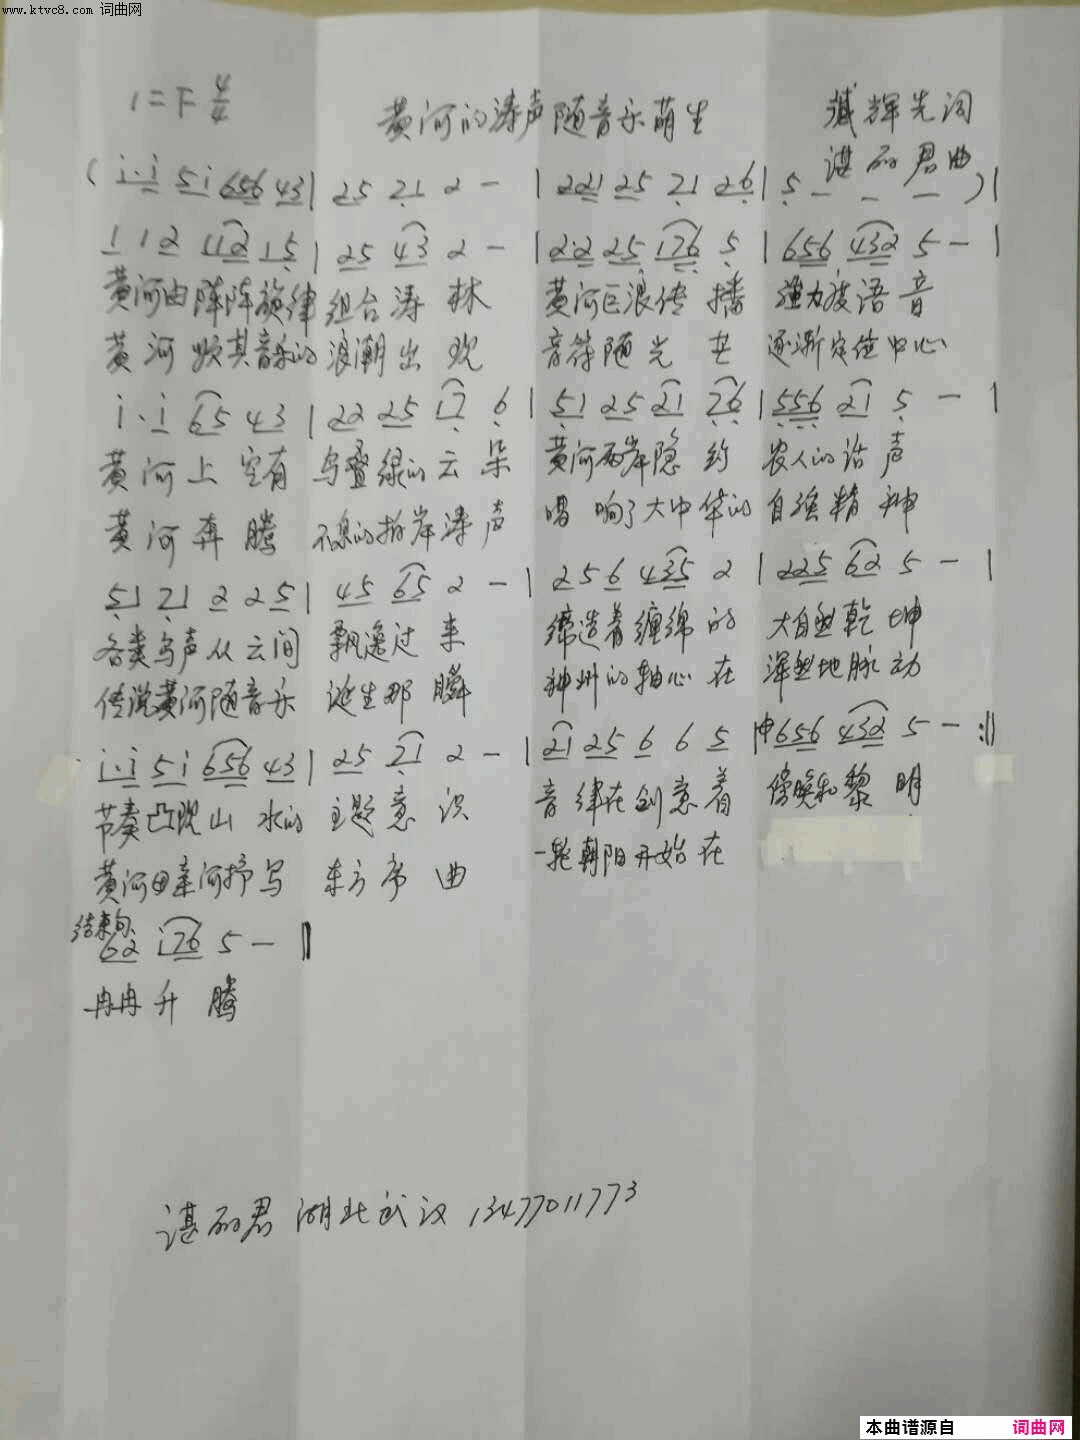 www.ktvc8.com 词曲网
1=F 4/4
黄河的涛声随音乐萌生
臧辉先词
谌丽君曲
( i·i 5i 656 43 | 25 21 2 - | 221 25 21 26 | 5 - - - ) |
1 12 112 15 | 25 43 2 - | 2·2 25 176 5 | 656 432 5 - |
黄河由阵阵旋律组合涛林 黄河巨浪传播强力度语音
黄河颇具音乐的浪潮出现 音符随光芒逐渐定位中心
i·i 65 43 | 22 25 17 6 | 51 25 21 76 | 556 21 5 - |
黄河上空有鸟叠绿的云朵 黄河两岸隐约农人的话声
黄河奔腾不息的拍岸涛声 唱响了大中华的自强精神
51 21 2 25 | 45 65 2 - | 256 435 2 | 225 62 5 - |
各类鸟声从云间飘逸过来 缔造着缠绵的大自然乾坤
传说黄河随音乐诞生那瞬 神州的轴心在浑然地脉动
i·i 5i 656 43 | 25 21 2 - | 21 25 6 6 5 | 656 432 5 - :||
节奏凸现山水的主题意识 音律在创意着傍晚和黎明
黄河母亲河抒写东方序曲 一轮朝阳开始在
结束句
62 i76 5 - ||
冉冉升腾
谌丽君 湖北武汉 13477011773
本曲谱源自 词曲网